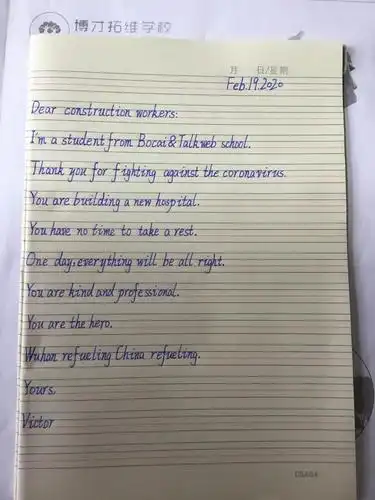 博才拓维学校
月 日/星期
Feb.19.2020
Dear construction workers:
I'm a student from Bocai&Talkweb school.
Thank you for fighting against the coronavirus.
You are building a new hospital.
You have no time to take a rest.
One day,everything will be all right.
You are kind and professional.
You are the hero.
Wuhan refueling China refueling.
Yours,
Victor